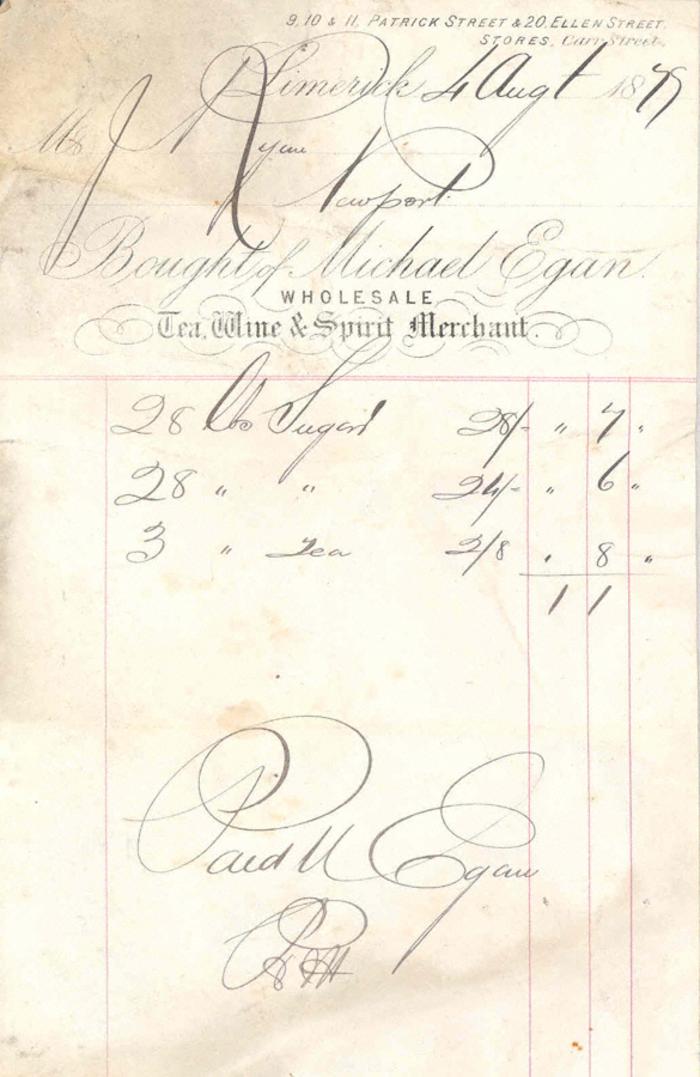 9, 10 & 11, PATRICK STREET & 20, ELLEN STREET.
STORES, Carr Street.
Limerick 4 Augt 1879
Mr J Ryan
Newport
Bought of Michael Egan.
WHOLESALE
Tea, Wine & Spirit Merchant.
28 lbs Sugar 28/- " 7 "
28 " " 24/- " 6 "
3 " Tea 2/8 " 8 "
1 1
Paid M Egan